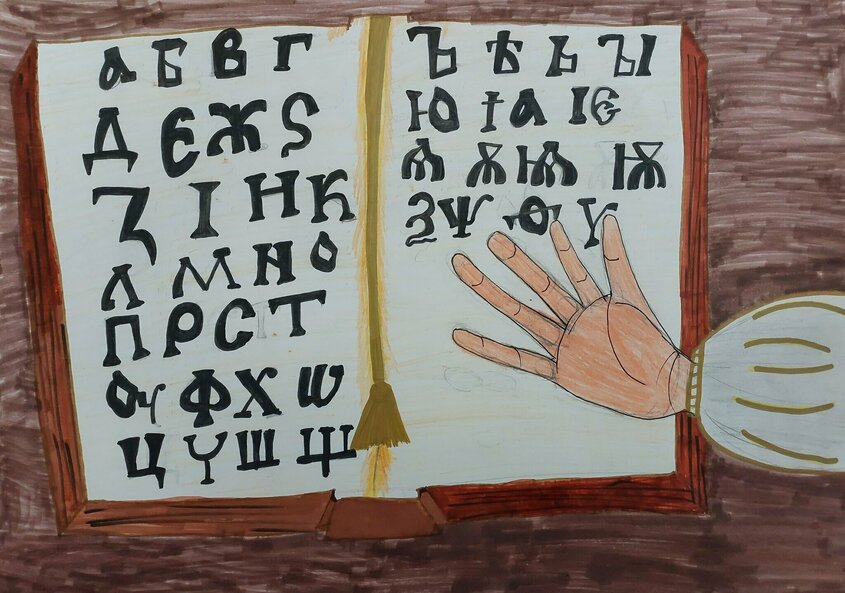 А Б В Г
Д Є Ж Ѕ
Ꙁ І Н К
Л М Н О
П Р С Т
Оу Ф Х Ѡ
Ц Ч Ш Щ
Ъ Ѣ Ь Ы
Ю Ꙗ Ѥ
Ѧ Ѫ Ѩ Ѭ
Ѯ Ѱ Ѳ Ѵ